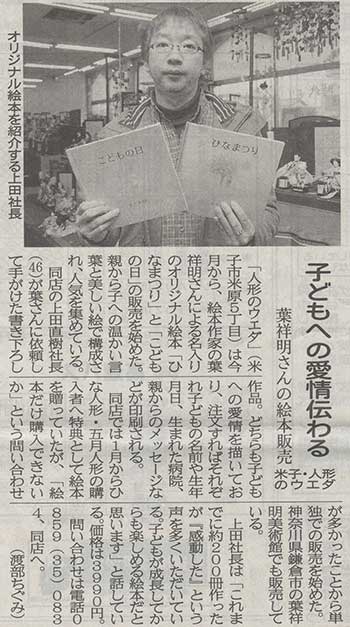 こどもの日
ひなまつり
オリジナル絵本を紹介する上田社長
子どもへの愛情伝わる
葉祥明さんの絵本販売
米子・人形のウエダ
「人形のウエダ」(米
子市米原5丁目)は今
月から、絵本作家の葉
祥明さんによる名入り
のオリジナル絵本「ひ
なまつり」と「こども
の日」の販売を始めた。
親から子への温かい言
葉と美しい絵で構成さ
れ、人気を集めている。
同店の上田直樹社長
(46)が葉さんに依頼し
て手がけた書き下ろし
作品。どちらも子ども
への愛情を描いてお
り、注文すればそれぞ
れ子どもの名前や生年
月日、生まれた病院、
親からのメッセージな
どが印刷される。
同店では1月からひ
な人形・五月人形の購
入者へ特典として絵本
を贈っていたが、「絵
本だけ購入できない
か」という問い合わせ
が多かったことから単
独での販売を始めた。
神奈川県鎌倉市の葉祥
明美術館でも販売して
いる。
上田社長は「これま
でに約200冊作った
が『感動した』という
声を多くいただいてい
る。子どもが成長してか
らも楽しめる絵本だと
思います」と話してい
る。価格は3990円。
問い合わせは電話0
859(35)083
4、同店へ。
(渡部ちぐみ)